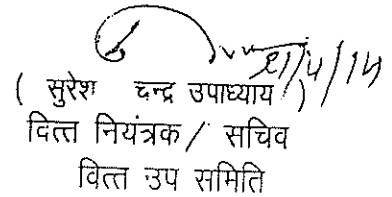 21/4/14
( सुरेश चन्द्र उपाध्याय )
वित्त नियंत्रक / सचिव
वित्त उप समिति